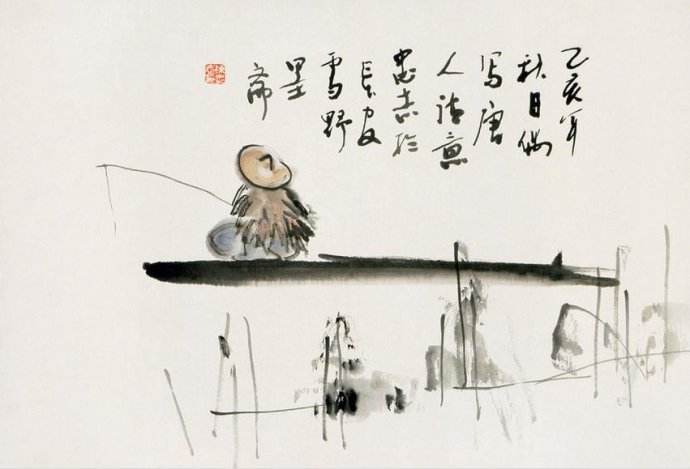 乙亥年
秋日偶
写唐
人诗意
忠志於
長安
雪野
墨斋